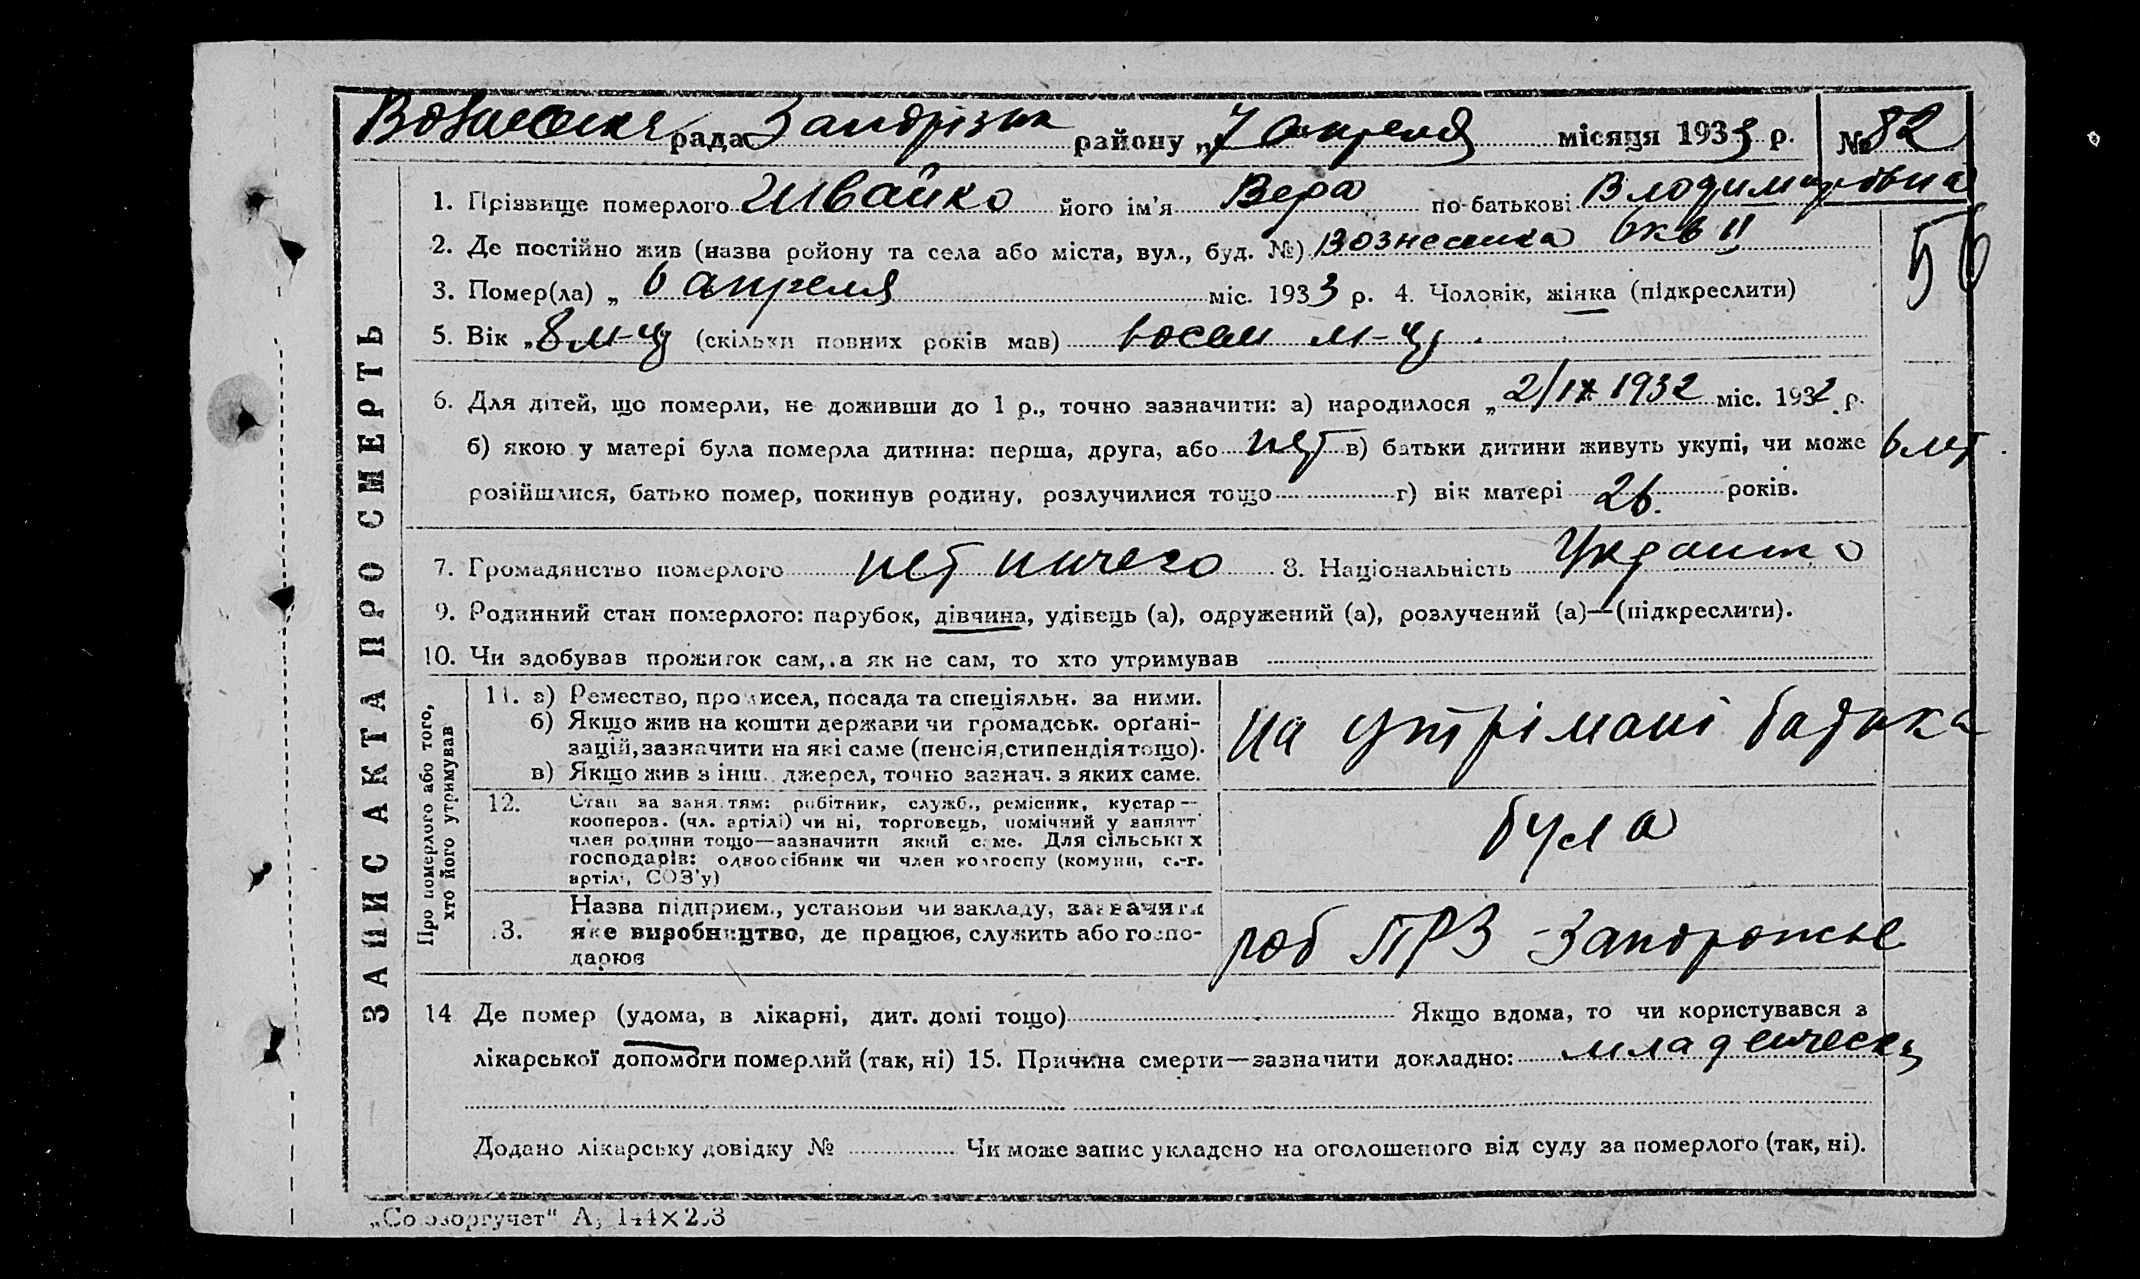 Вознесенка рада Запорізьк району „7 апреля місяця 1933 р. № 82
1. Прізвище померлого Швайко його ім'я Вера по-батькові Владимировна
2. Де постійно жив (назва ройону та села або міста, вул., буд. №) Вознесенка 56
3. Помер(ла) „ 6 апреля міс. 1933 р. 4. Чоловік, жінка (підкреслити)
5. Вік „8 м-ц (скільки повних років мав) восем м-ц.
6. Для дітей, що померли, не доживши до 1 р., точно зазначити: а) народилося „ 2/IX 1932 міс. 1932 р.
б) якою у матері була померла дитина: перша, друга, або нет в) батьки дитини живуть укупі, чи може
розійшлися, батько помер, покинув родину, розлучилися тощо г) вік матері 26. років.
7. Громадянство померлого нет ничего 8. Національність
9. Родинний стан померлого: парубок, дівчина, удівець (а), одружений (а), розлучений (а)—(підкреслити).
10. Чи здобував прожиток сам, а як не сам, то хто утримував
ЗАПИС АКТА ПРО СМЕРТЬ
Про померлого або того,
хто його утримував
11. а) Ремество, промисел, посада та спеціяльн. за ними.
б) Якщо жив на кошти держави чи громадськ. орґані-
зацій, зазначити на які саме (пенсія, стипендія тощо).
в) Якщо жив з інш. джерел, точно зазнач. з яких саме.
на утрімані батька
12. Стан за заняттям: робітник, служб., ремісник, кустар—
коопeров. (чл. артілі) чи ні, торговець, помічний у занятт
член родини тощо—зазначити який саме. Для сільських
господарів: одноосібник чи член колгоспу (комуни, с.-г.
артілі, СОЗ'у)
була
13. Назва підприєм., установи чи закладу, зазначити
яке виробництво, де працює, служить або госпо-
дарює
роб ПРЗ Запорожье
14 Де помер (удома, в лікарні, дит. домі тощо) Якщо вдома, то чи користувався з
лікарської допомоги померлий (так, ні) 15. Причина смерти—зазначити докладно: младенческ
Додано лікарську довідку № Чи може запис укладено на оголошеного від суду за померлого (так, ні).
„Союзоргучет"